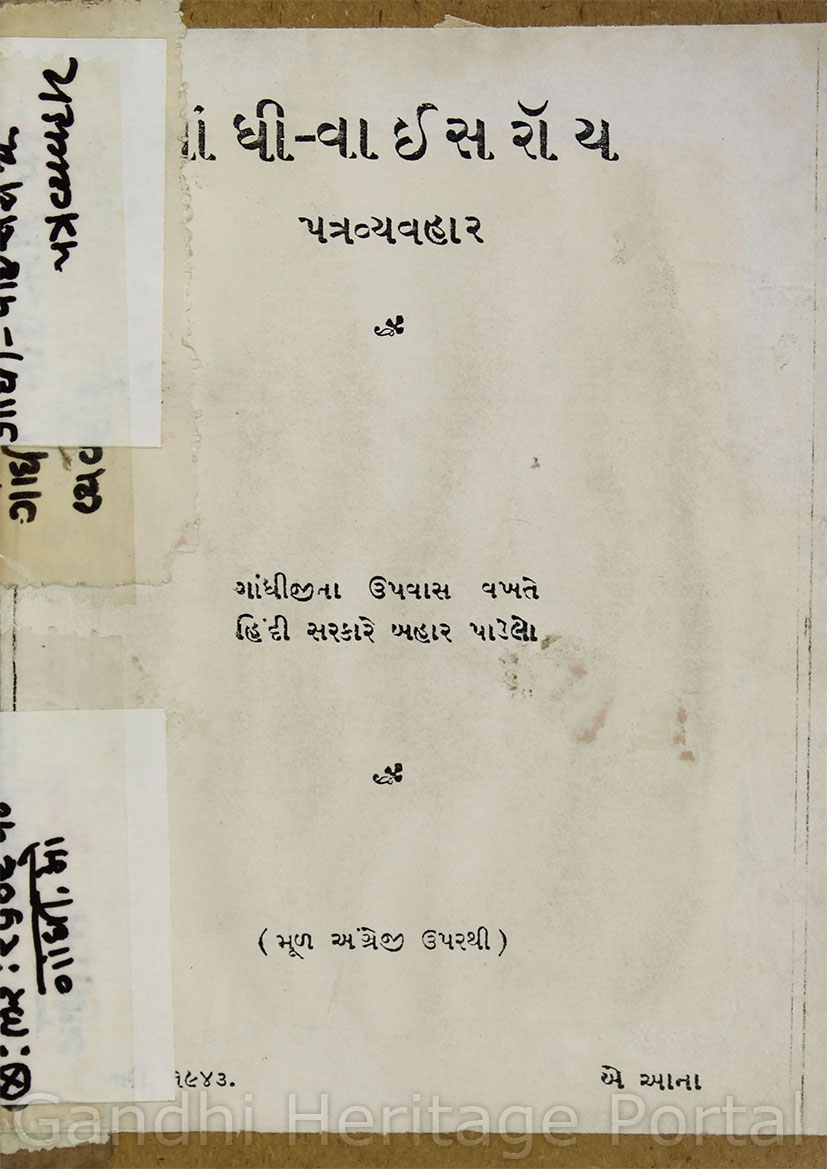 ાંધી-વાઈસરૉય
પત્રવ્યવહાર
ગાંધીજીના ઉપવાસ વખતે
હિંદી સરકારે બહાર પાડેલો
(મૂળ અંગ્રેજી ઉપરથી)
૧૯૪૩.
બે આના
પત્રવ્યવહાર
ગાંધી
વ્ય
ગાંધી. મો
Gandhi Heritage Portal